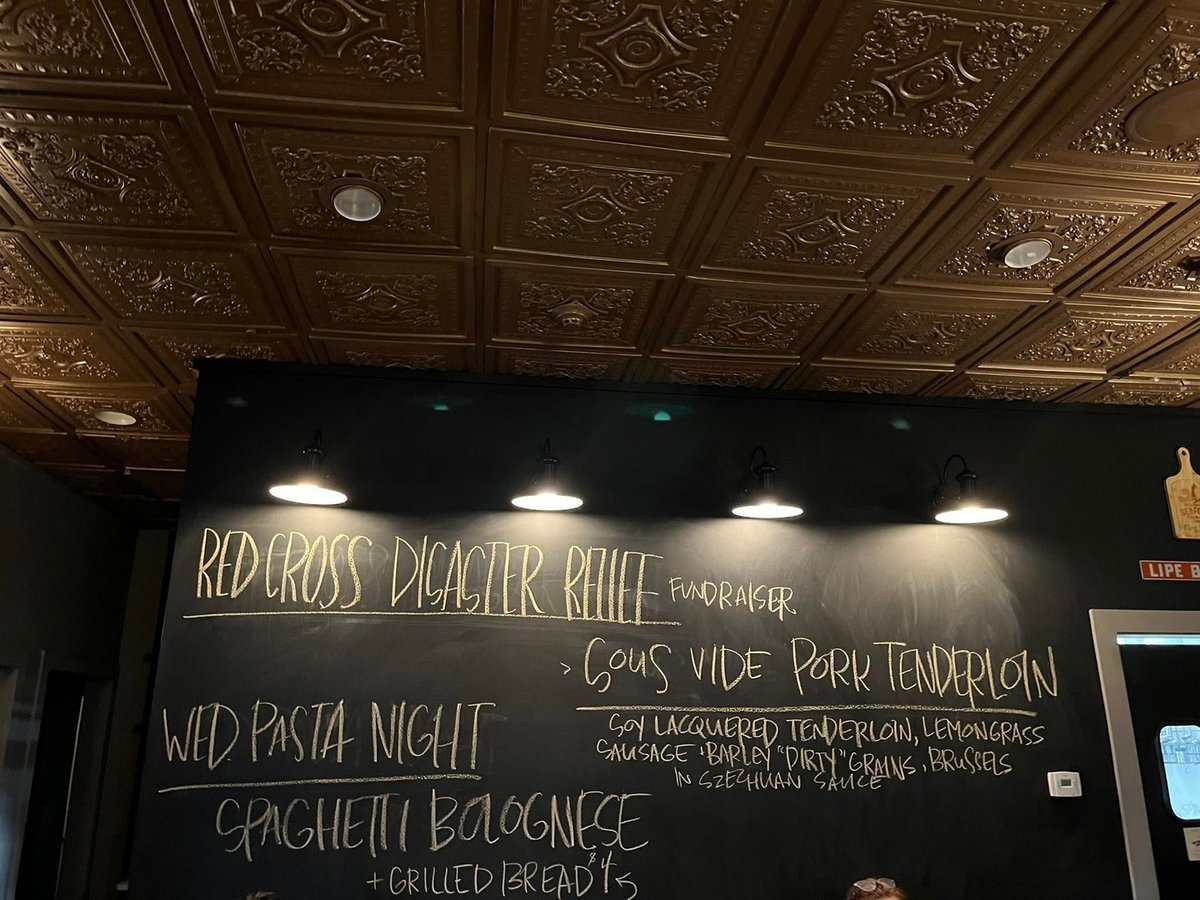 RED CROSS DISASTER RELIEF FUNDRAISER
> SOUS VIDE PORK TENDERLOIN
SOY LACQUERED TENDERLOIN, LEMONGRASS
SAUSAGE + BARLEY "DIRTY" GRAINS, BRUSSELS
IN SZECHUAN SAUCE
WED. PASTA NIGHT
SPAGHETTI BOLOGNESE
+ GRILLED BREAD
LIPE B